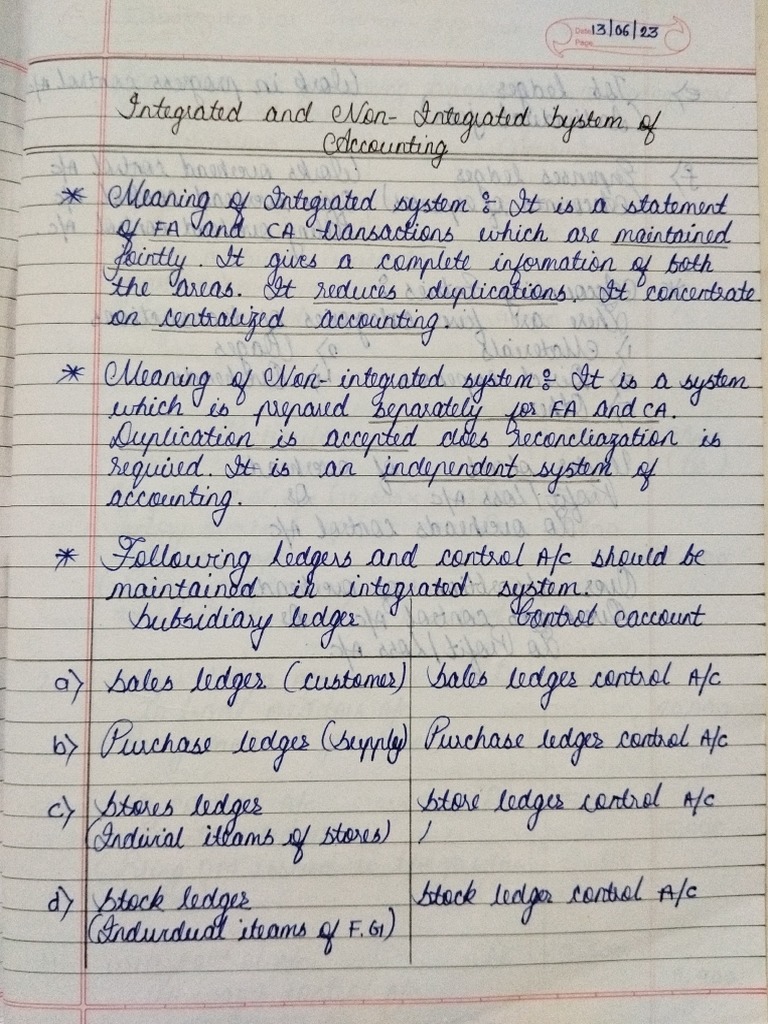 Date 13/06/23
Page
Integrated and Non-Integrated System of
Accounting
* Meaning of Integrated system : It is a statement
of FA and CA transactions which are maintained
jointly. It gives a complete information of both
the areas. It reduces duplications. It concentrate
on centralized accounting.
* Meaning of Non-integrated system : It is a system
which is prepared separately for FA and CA.
Duplication is accepted does reconcliazation is
required. It is an independent system of
accounting.
* Following ledgers and control A/c should be
maintained in integrated system.
Subsidiary ledger Control account
a) Sales ledger (customer) Sales ledger control A/c
b) Purchase ledger (supply) Purchase ledger control A/c
c) Stores ledger Store ledger control A/c
(Indivial iteams of stores)
d) Stock ledger Stock ledger control A/c
(Indurdual iteams of F.G)